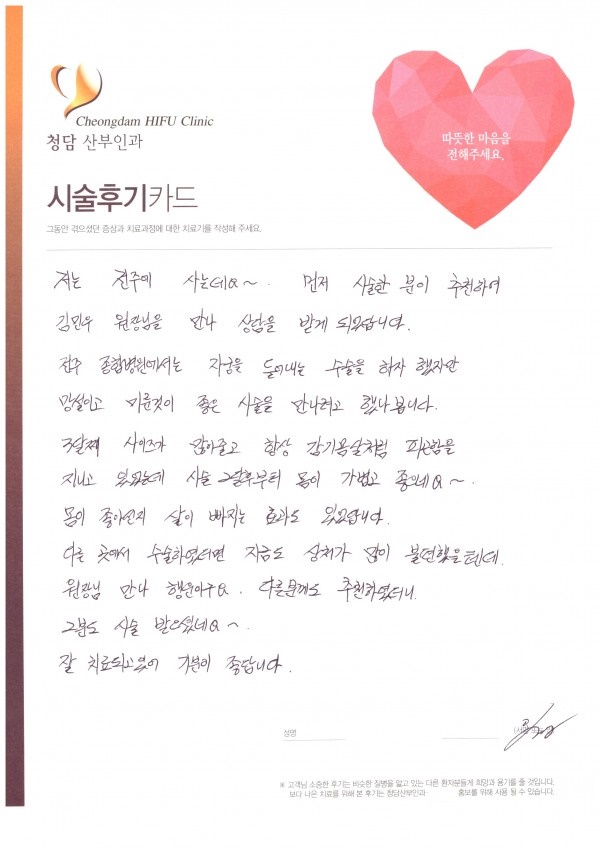 Cheongdam HIFU Clinic
청담 산부인과
따뜻한 마음을
전해주세요.
시술후기카드
그동안 겪으셨던 증상과 치료과정에 대한 치료기를 작성해 주세요.
저는 전주에 사는데요~. 먼저 시술한 분이 추천하여
김민우 원장님을 만나 상담을 받게 되었습니다.
전주 종합병원에서는 자궁을 들어내는 수술을 하자 했지만
망설이고 미룬것이 좋은 시술을 만나려고 했나 봅니다.
3달째 사이즈가 많이줄고 항상 감기몸살처럼 피곤함을
지니고 있었는데 시술 2달후부터 몸이 가볍고 좋으네요~.
몸이 좋아선지 살이 빠지는 효과도 있었습니다.
다른 곳에서 수술하였더면 지금도 상처가 많이 불편했을텐데.
원장님 만나 행운아구요. 다른분께도 추천하였더니.
그분도 시술 받으셨네요~
잘 치료되고있어 기분이 좋답니다.
성명
※ 고객님 소중한 후기는 비슷한 질병을 앓고 있는 다른 환자분들께 희망과 용기를 줄 것입니다.
보다 나은 치료를 위해 본 후기는 청담산부인과 홍보를 위해 사용 될 수 있습니다.